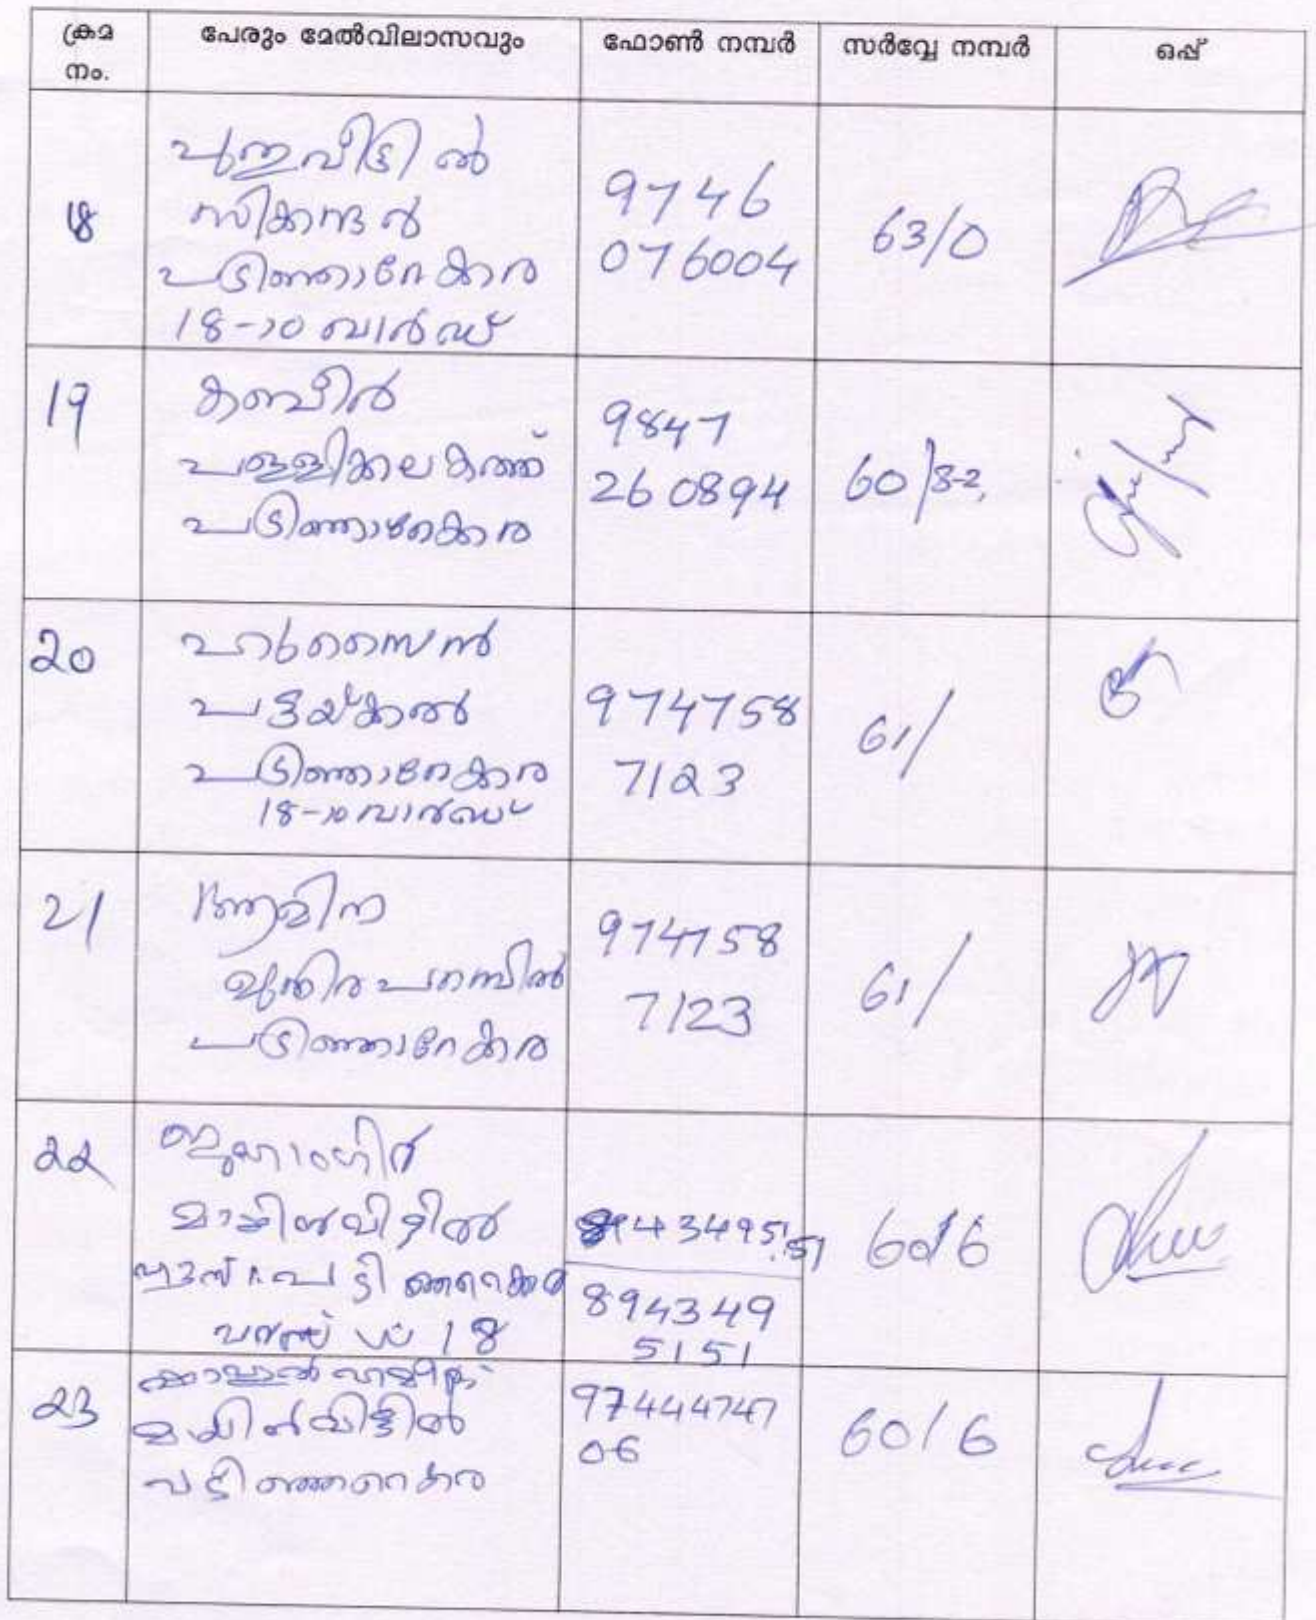 ക്രമ നം. പേരും മേൽവിലാസവും ഫോൺ നമ്പർ സർവ്വേ നമ്പർ ഒപ്പ്
18
പുതുവീട്ടിൽ
സിക്കന്തർ
പടിഞ്ഞാറേക്കര
18-ാം വാർഡ്
9746
076004
63/0
19
കബീർ
പള്ളിക്കലകത്ത്
പടിഞ്ഞാറേക്കര
9847
260894
60/3-2
20
ഹുസൈൻ
പട്ടയ്ക്കൽ
പടിഞ്ഞാറേക്കര
18-ാം വാർഡ്
974758
7123
61/
21
ആമിന
മുതിരപറമ്പിൽ
പടിഞ്ഞാറേക്കര
974758
7123
61/
22
ജുഹാംഗീർ
മായിൻവിട്ടിൽ
18
8943495151
894349
5151
60/6
23
മയിൻവിട്ടിൽ
പടിഞ്ഞറെകര
97444747
06
60/6